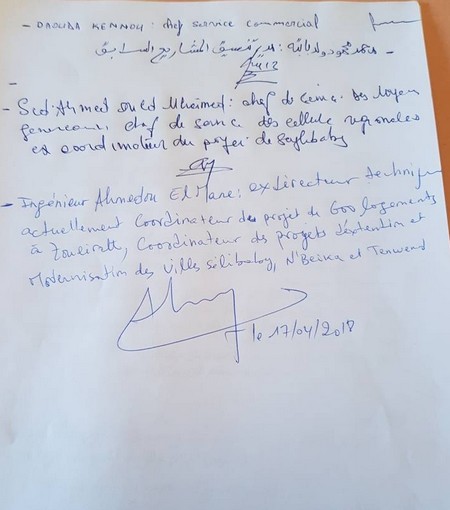 - DAOUDA KENNOU: chef service commercial
محمد محمود ولد اباته: مدير تنسيق المشاريع السابق -
-
- Sid'Ahmed ould Mheimed: chef de service des Moyens
generaux, chef de service des cellule regionales
ex coordinateur du projet de Seylibaby
- Ingénieur Ahmedou El Mane: ex directeur technique
actuellement Coordinateur des projet de 600 logements
à Zouiratt, Coordinateur des projets d'extention et
Modernisation des Villes sélibaby, N'Beika et Tenwend
le 17/04/2018